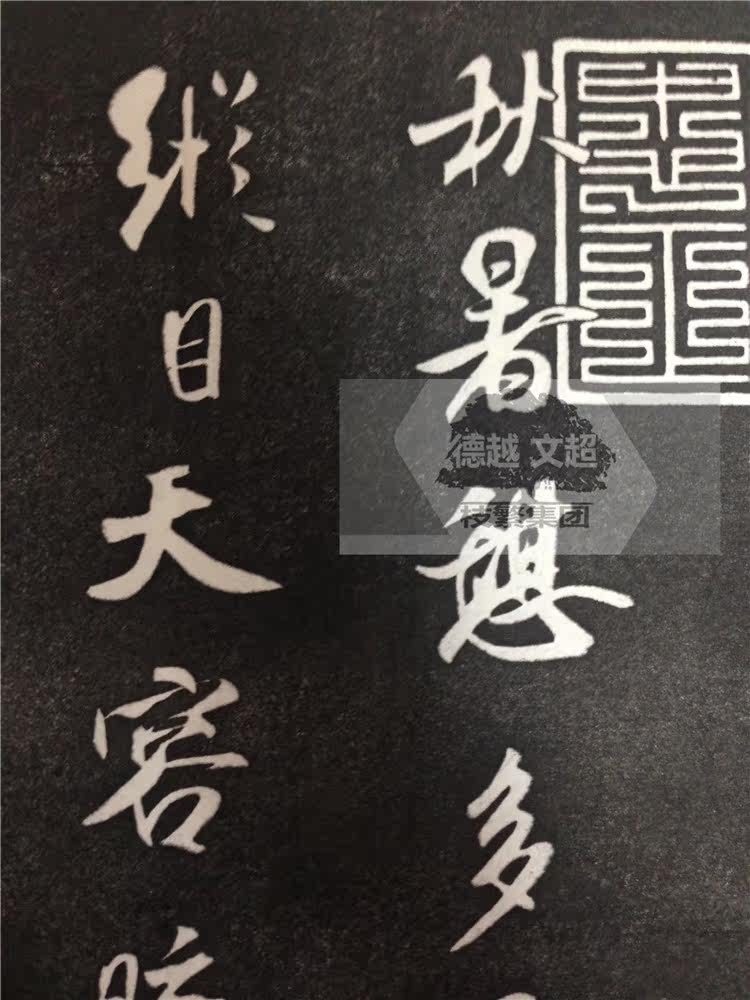 秋暑憩多
縱目天容
德越 文超
枝繁集团